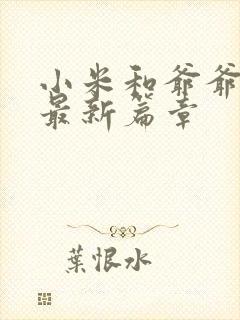 小米和爷爷
最新篇章
葉恨水